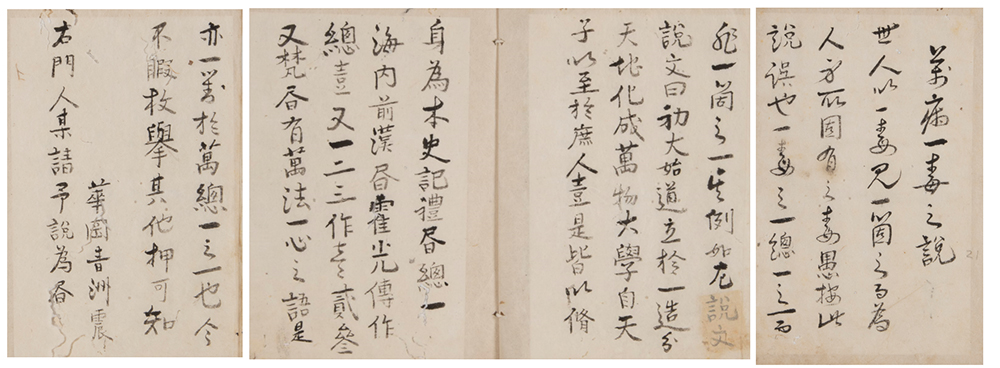 萬病一毒之說
世人以一毒見一箇之為
人身所固有之毒愚按此
說誤也一毒之一總一之一而
非一箇之一其例如左說文
說文曰初大始道立於一造分
天地化成萬物大學自天
子以至於庶人壹是皆以脩
身為本史記禮書總一
海内前漢書霍光傳作
總壹又一二三作壱貳參
又梵書有萬法一心之語是
亦一對於萬總一之一也今
不暇枚擧其他押可知
華岡青洲震
右門人某請予說為書